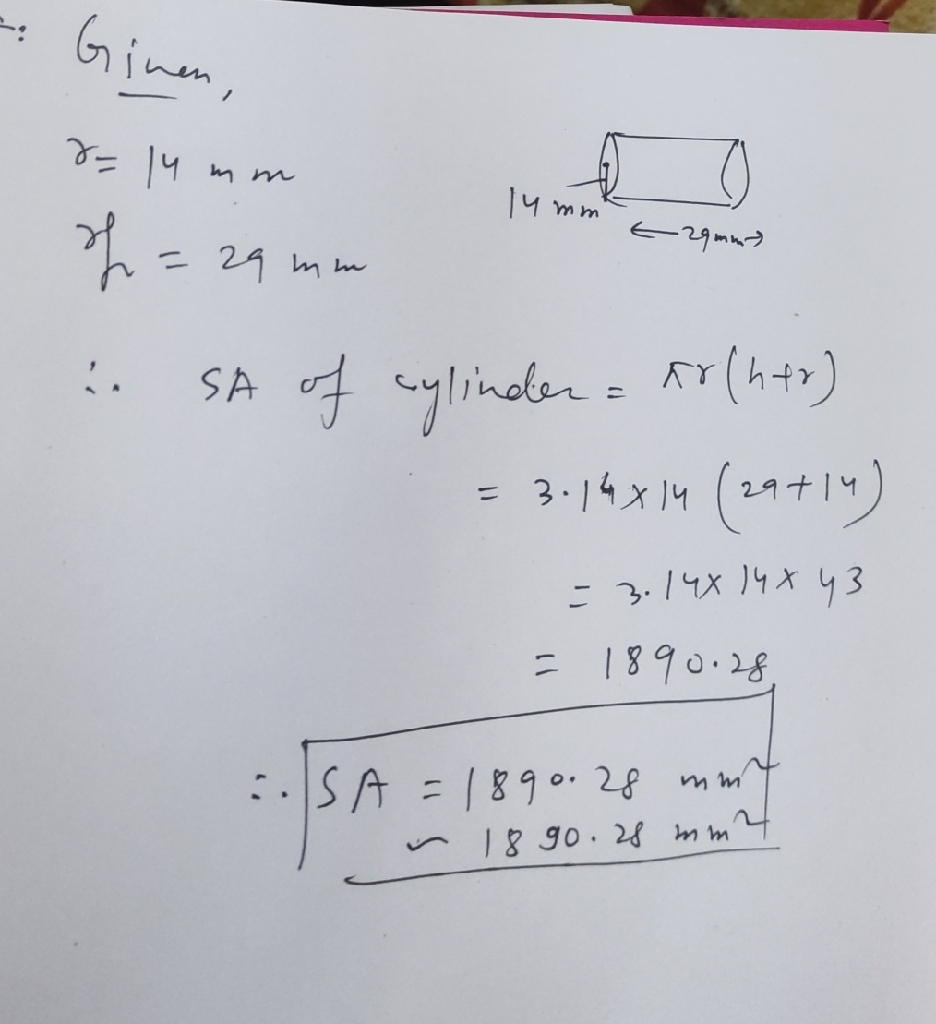 Given,
r = 14 mm
h = 29 mm
14 mm
← 29mm →
∴ SA of cylinder = πr(h+r)
= 3.14 x 14 (29+14)
= 3.14 x 14 x 43
= 1890.28
∴ SA = 1890.28 mm²
~ 1890.28 mm²